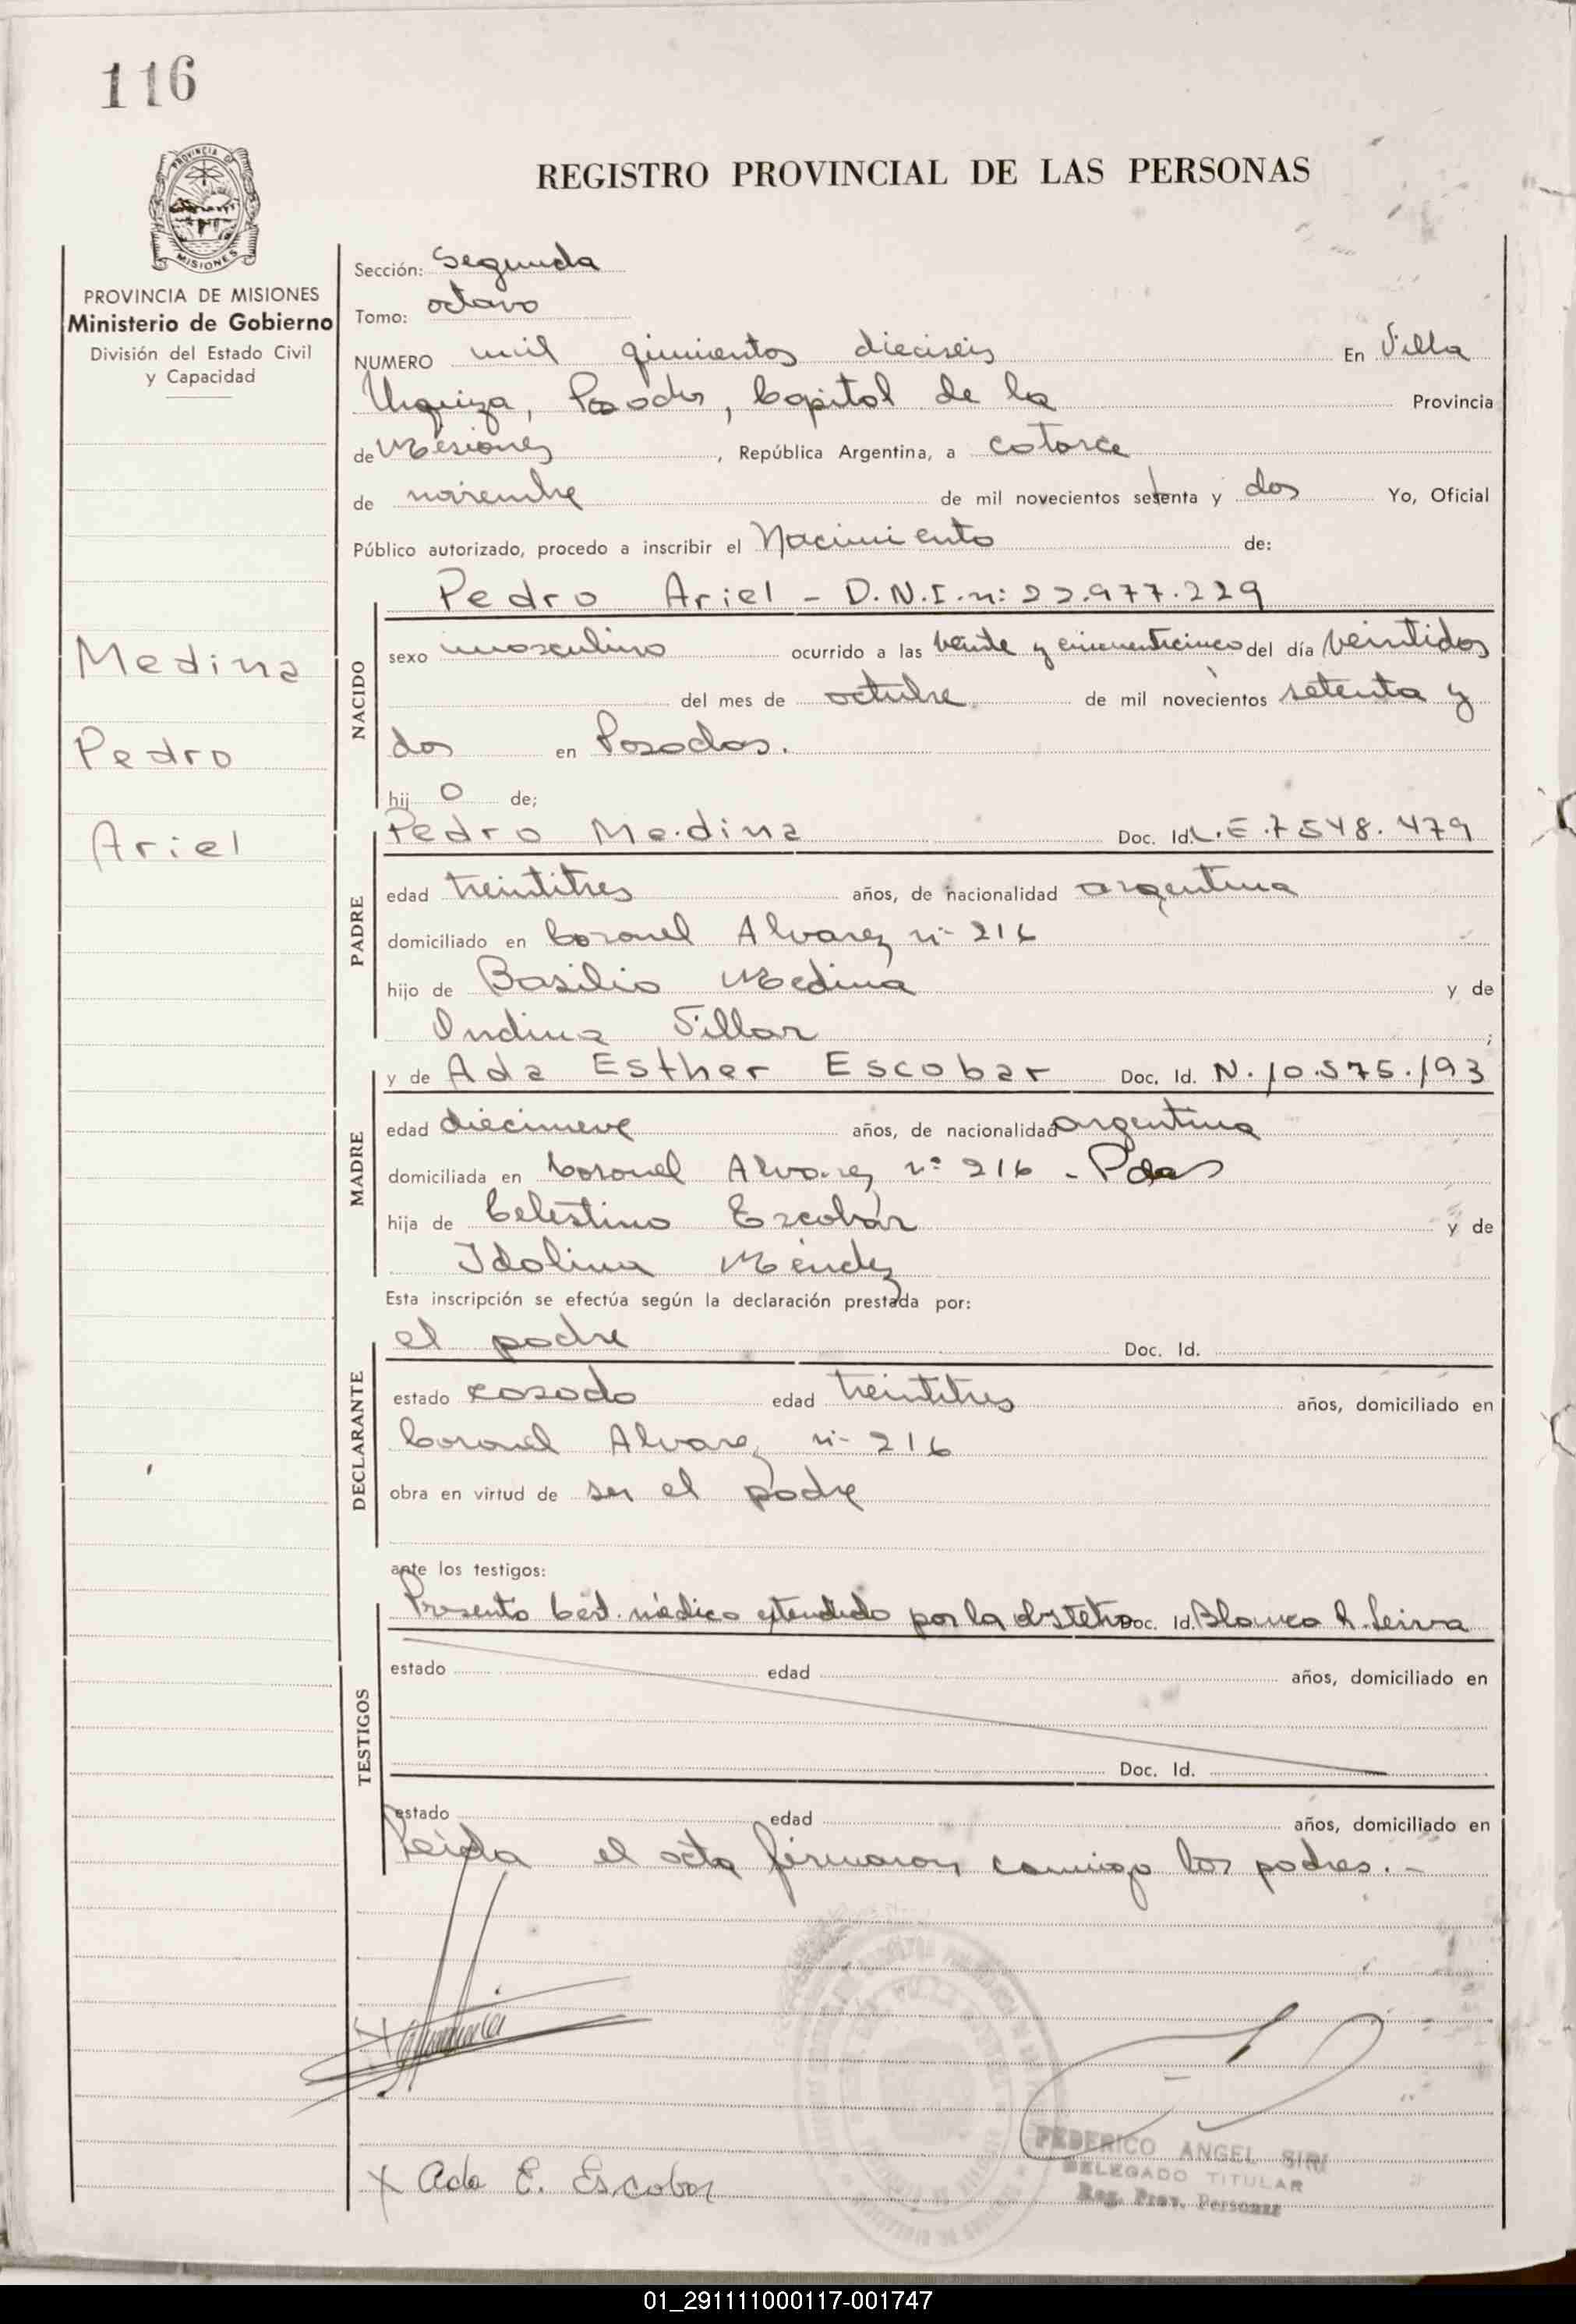 116
PROVINCIA DE
MISIONES
REGISTRO PROVINCIAL DE LAS PERSONAS
PROVINCIA DE MISIONES
Ministerio de Gobierno
División del Estado Civil
y Capacidad
Medina
Pedro
Ariel
Sección: Segunda
Tomo: octavo
NUMERO mil qinientos dieciseis En Villa
Urquiza, Posadas, Capital de la Provincia
de Misiones, República Argentina, a catorce
de noviembre de mil novecientos setenta y dos Yo, Oficial
Público autorizado, procedo a inscribir el Nacimiento de:
Pedro Ariel - D.N.I. n: 22.977.229
NACIDO
sexo masculino ocurrido a las veinte y cincuenticinco del día veintidos
del mes de octubre de mil novecientos setenta y
dos en Posadas.
hij o de;
PADRE
Pedro Medina Doc. Id. L.E. 7548.479
edad treintitres años, de nacionalidad argentina
domiciliado en Coronel Alvarez nº 216
hijo de Basilio Medina y de
Ondina Villar ;
MADRE
y de Ada Esther Escobar Doc. Id. N. 10.575.193
edad diecinueve años, de nacionalidad argentina
domiciliada en Coronel Alvarez nº 216 - Pdas
hija de Celestino Escobar y de
Idolina Méndez
Esta inscripción se efectúa según la declaración prestada por:
DECLARANTE
el padre Doc. Id.
estado casado edad treintitres años, domiciliado en
Coronel Alvarez nº 216
obra en virtud de ser el padre
ante los testigos:
TESTIGOS
Presento Cert. médico extendido por la obstetra Doc. Id. Blanca R. Leiva
estado edad años, domiciliado en
Doc. Id.
estado edad años, domiciliado en
Leida el acta firmaron conmigo los padres.-
x Ada E. Escobar
FEDERICO ANGEL SIRI
DELEGADO TITULAR
Reg. Prov. Personas
01_291111000117-001747